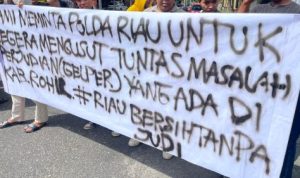 MEMINTA POLDA RIAU UNTUK
SEGERA MENGUSUT TUNTAS MASALAH
PERJUDIAN (GELPER) YANG ADA DI
KAB. ROHIL. #RIAU BERSIH TANPA
JUDI